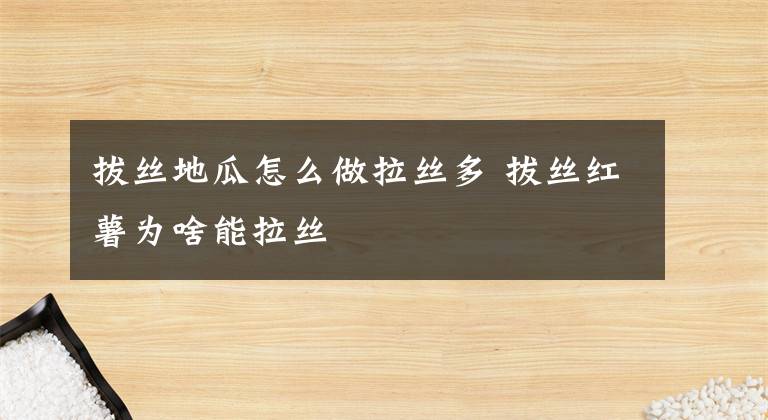 拔丝地瓜怎么做拉丝多 拔丝红
薯为啥能拉丝